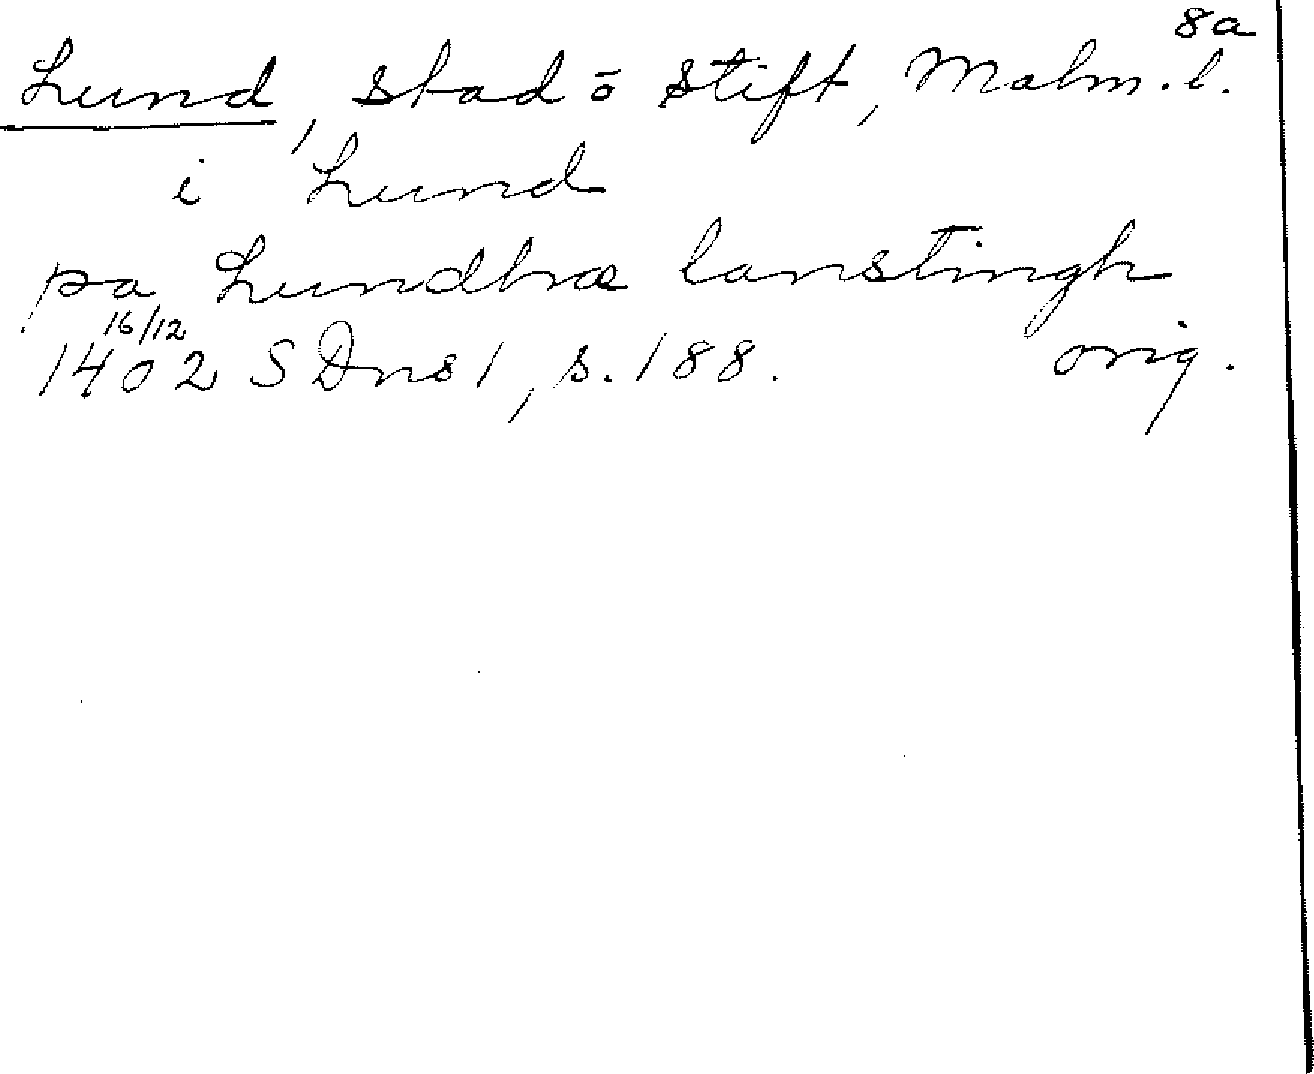 8a
Lund, stad ō stift, Malm. l.
i Lund
pa Lundhæ lanstingh
16/12
1402 SDns 1, s. 188. orig.